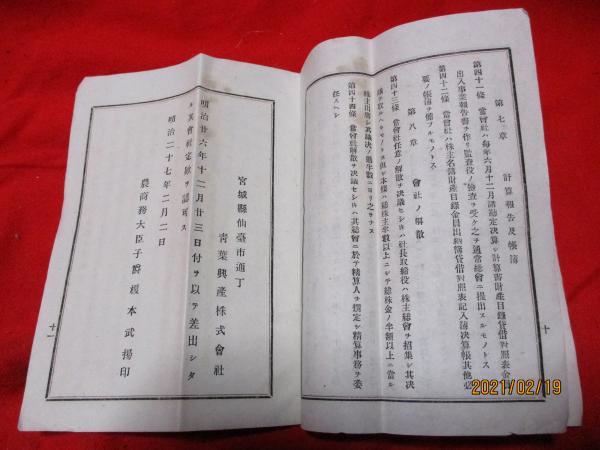 第七章　計算報告及帳簿
第四十一條　當會社ハ毎年六月十二月諸勘定決算シ計算書財産目録貸借對照表金錢
出入事業報告書ヲ作リ監査役ノ檢査ヲ受ケ之ヲ通常總會ニ提出スルモノトス
第四十二條　當會社ハ株主名簿財産目録金員出納簿貸借對照表記入簿決算帳其他必
要ノ帳簿ヲ備フルモノトス
第八章　會社ノ解散
第四十三條　當會社任意ノ解散ヲ決議セントキハ社長取締役ハ株主總會ヲ招集シ其決
議ヲ取ルヘキモノトス但シ本條ハ總株主半數以上ニシテ總株金ノ半額以上ニ當ル
株主出席シ其議決ノ過半數ニヨリ之ヲナス
第四十四條　當會社解散ヲ決議セシトキハ其總會ニ於テ精算人ヲ撰定シ精算事務ヲ委
任スヘシ
十
宮城縣仙臺市通丁
靑葉興産株式會社
明治廿六年十二月廿三日付ヲ以テ差出シタ
ル其會社定欵ヲ認可ス
明治二十七年二月二日
農商務大臣子爵榎本武揚印
十一
2021/02/19